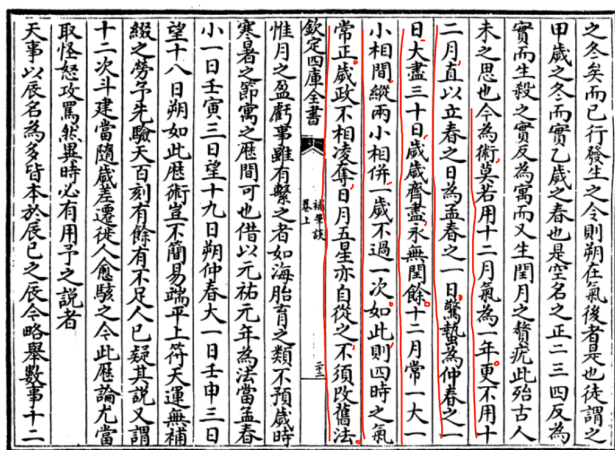 之冬矣而已行發生之令則朔在氣後者是也徒謂之
甲歲之冬而實乙歲之春也是空名之正二三四反為
實而生殺之實反為寓而又生閏月之贅疣此殆古人
未之思也今為術莫若用十二月氣為一年更不用十
二月直以立春之日為孟春之一日驚蟄為仲春之一
日大盡三十日歲歲齊盡永無閏餘十二月常一大一
小相間縱兩小相併一歲不過一次如此則四時之氣
常正歲政不相凌奪日月五星亦自從之不須改舊法
欽定四庫全書
補筆談
卷上
二十二
惟月之盈虧事雖有繫之者如海胎育之類不預歲時
寒暑之節寓之歷間可也借以元祐元年為法當孟春
小一日壬寅三日望十九日朔仲春大一日壬申三日
望十八日朔如此歷術豈不簡易端平上符天運無補
綴之勞予先驗天百刻有餘有不足人已疑其說又謂
十二次斗建當隨歲差遷徙人愈駭之今此歷論尤當
取怪怒攻罵然異時必有用予之說者
天事以辰名為多皆本於辰巳之辰今略舉數事十二